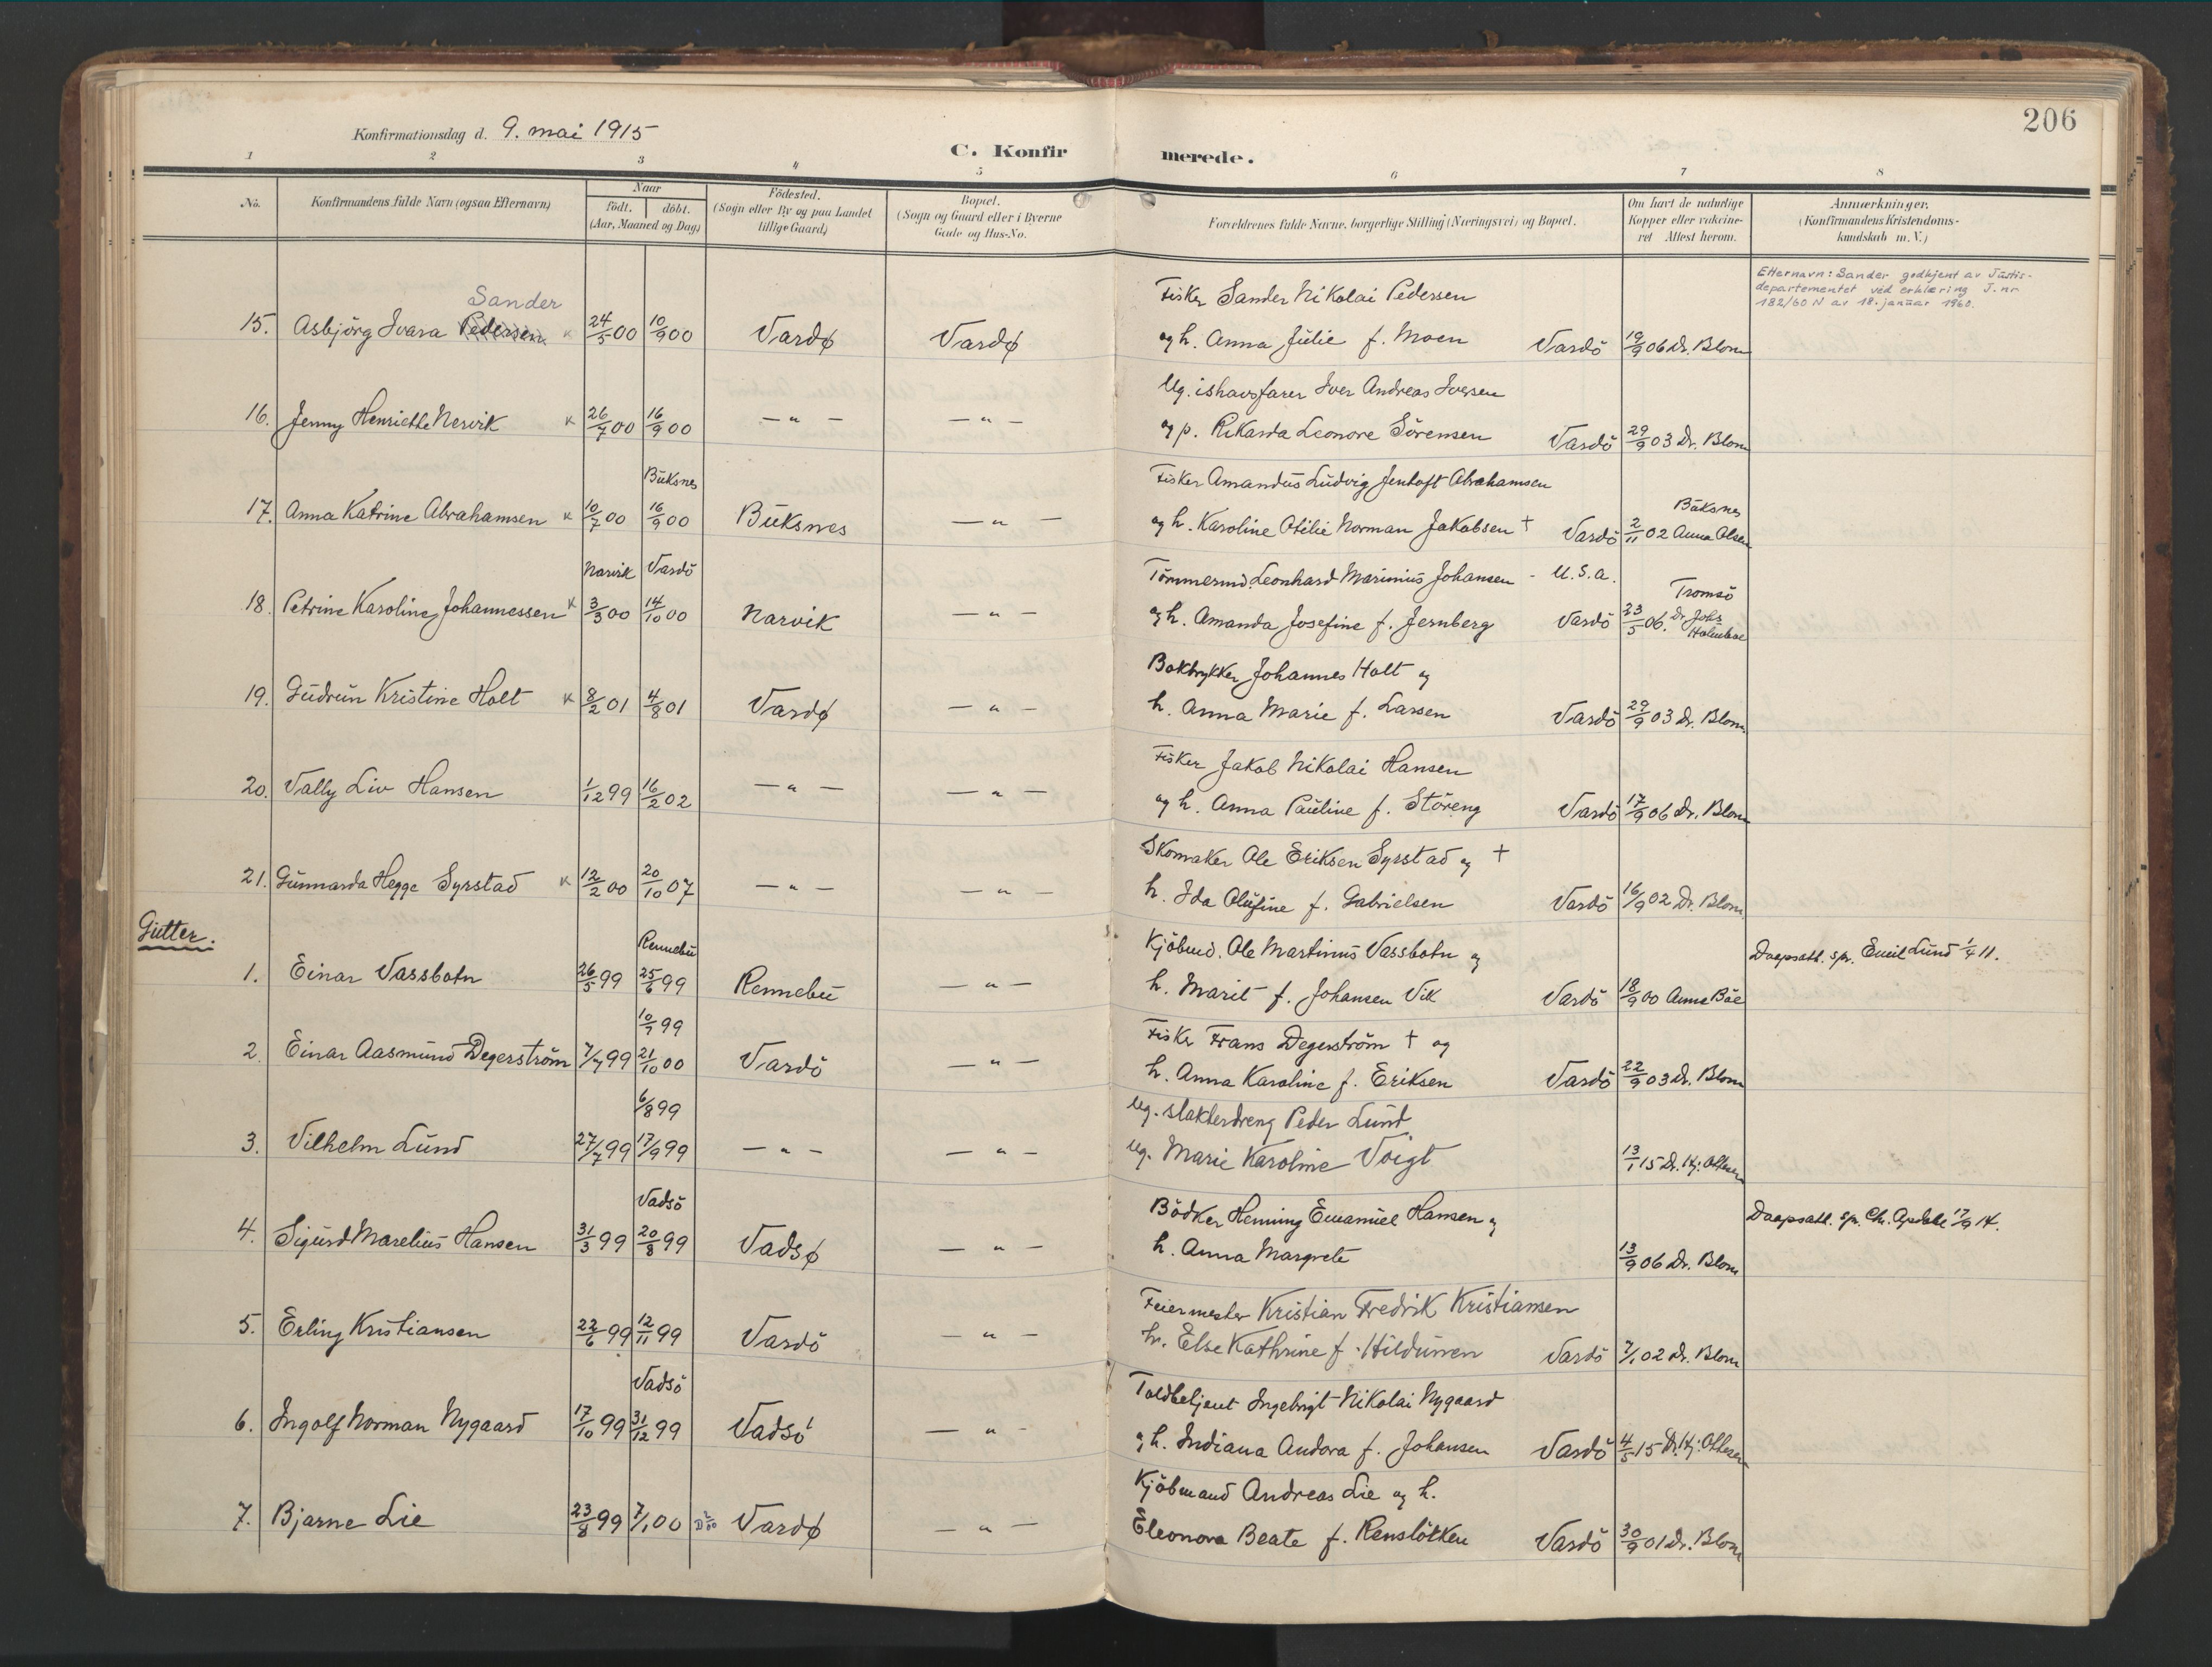 206
Konfirmationsdag d. 9. mai 1915
C. Konfirmerede.
1 2 3 4 5 6 7 8
No. Konfirmandens fulde Navn (ogsaa Efternavn) Naar født. døbt. (Aar, Maaned og Dag) Födested. (Sogn eller By og paa Landet tillige Gaard) Bopæl. (Sogn og Gaard eller i Byerne Gade og Hus-No. Forældrenes fulde Navne, borgerlige Stilling (Næringsvei) og Bopæl. Om havt de naturlige Kopper eller vakcineret Attest herom. Anmærkninger. (Konfirmandens Kristendomskundskab m. V.)
Etternavn: Sander godkjent av Justis-
departementet ved erklæring J. nr
182/60 N av 18. januar 1960.
Sander Fisker Sander Nikolai Pedersen
15. Asbjörg Ivara Pedersen x 24/5 00 10/9 00 Vardø Vardø og h. Anna Julie f. Moen Vardö 19/9 06 Dr. Blom
Ug. ishavsfarer Iver Andreas Iversen
16. Jenny Henriette Nervik x 26/7 00 16/9 00 — " — — " — og p. Rikarda Leonore Sörensen Vardö 29/9 03 Dr. Blom
Buksnes Fisker Amandus Ludvig Jentoft Abrahamsen Buksnes
17. Anna Katrine Abrahamsen x 10/7 00 16/9 00 Buksnes — " — og h. Karoline Otilie Norman Jakobsen † Vardö 2/11 02 Anna Olsen
Narvik Vardö Tömmermd. Leonhard Marinius Johansen - U.S.a. Tromsö
18. Petrine Karoline Johannessen x 3/3 00 14/10 00 Narvik — " — og h. Amanda Josefine f. Jernberg Vardö 23/5 06. Dr Johs Holmboe
Boktrykker Johannes Holt og
19. Gudrun Kristine Holt x 8/2 01 4/8 01 Vardø — " — h. Anna Marie f. Larsen Vardö 29/9 03 Dr. Blom
Fisker Jakob Nikolai Hansen
20. Vally Liv Hansen 1/12 99 16/2 02 — " — — " — og h. Anna Pauline f. Störeng Vardö 17/9 06 Dr. Blom
Skomaker Ole Eriksen Syrstad og †
21. Gunnarda Hegge Syrstad x 12/2 00 20/10 07 — " — — " — h. Ida Olufine f. Gabrielsen Vardö 16/9 02 Dr. Blom
Gutter.
Rennebu Kjöbmd. Ole Martinus Vassbotn og Daapsatt. spr. Emil Lund 1/4 11.
1. Einar Vassbotn 26/5 99 25/6 99 Rennebu — " — h. Marit f. Johansen Vik Vardö 18/9 00 Anna Böe
10/9 99 Fisker Frans Degerström † og
2. Einar Aasmund Degerström 7/7 99 21/10 00 Vardö — " — h. Anna Karoline f. Eriksen Vardö 22/9 03 Dr. Blom
6/8 99 Ug. slakterdreng Peder Lund
3. Vilhelm Lund 27/7 99 17/9 99 — " — — " — Ug. Marie Karoline Voigt 13/1 15 Dr. Hj. Ottesen
Vadsö Bödker Henning Emanuel Hansen og Daapsatt. spr. Ch. 17/9 14.
4. Sigurd Marelius Hansen 31/3 99 20/8 99 Vadsø — " — h. Anna Margrete 13/9 06 Dr. Blom
Feiermester Kristian Fredrik Kristiansen
5. Erling Kristiansen 22/6 99 12/11 99 Vardö — " — h. Else Kathrine f. Vardö 7/1 02 Dr. Blom
Vadsö Toldbetjent Ingebrigt Nikolai Nygaard
6. Ingolf Norman Nygaard 17/10 99 31/12 99 Vadsö — " — og h. Indiana Andora f. Johansen Vardö 4/5 15 Dr. Hj. Ottesen
Kjöbmand Andreas Lie og h.
7. Bjarne Lie 23/8 99 7/1 00 Vardø — " — Eleonora Beate f. Renslökken Vardö 30/9 01 Dr. Blom